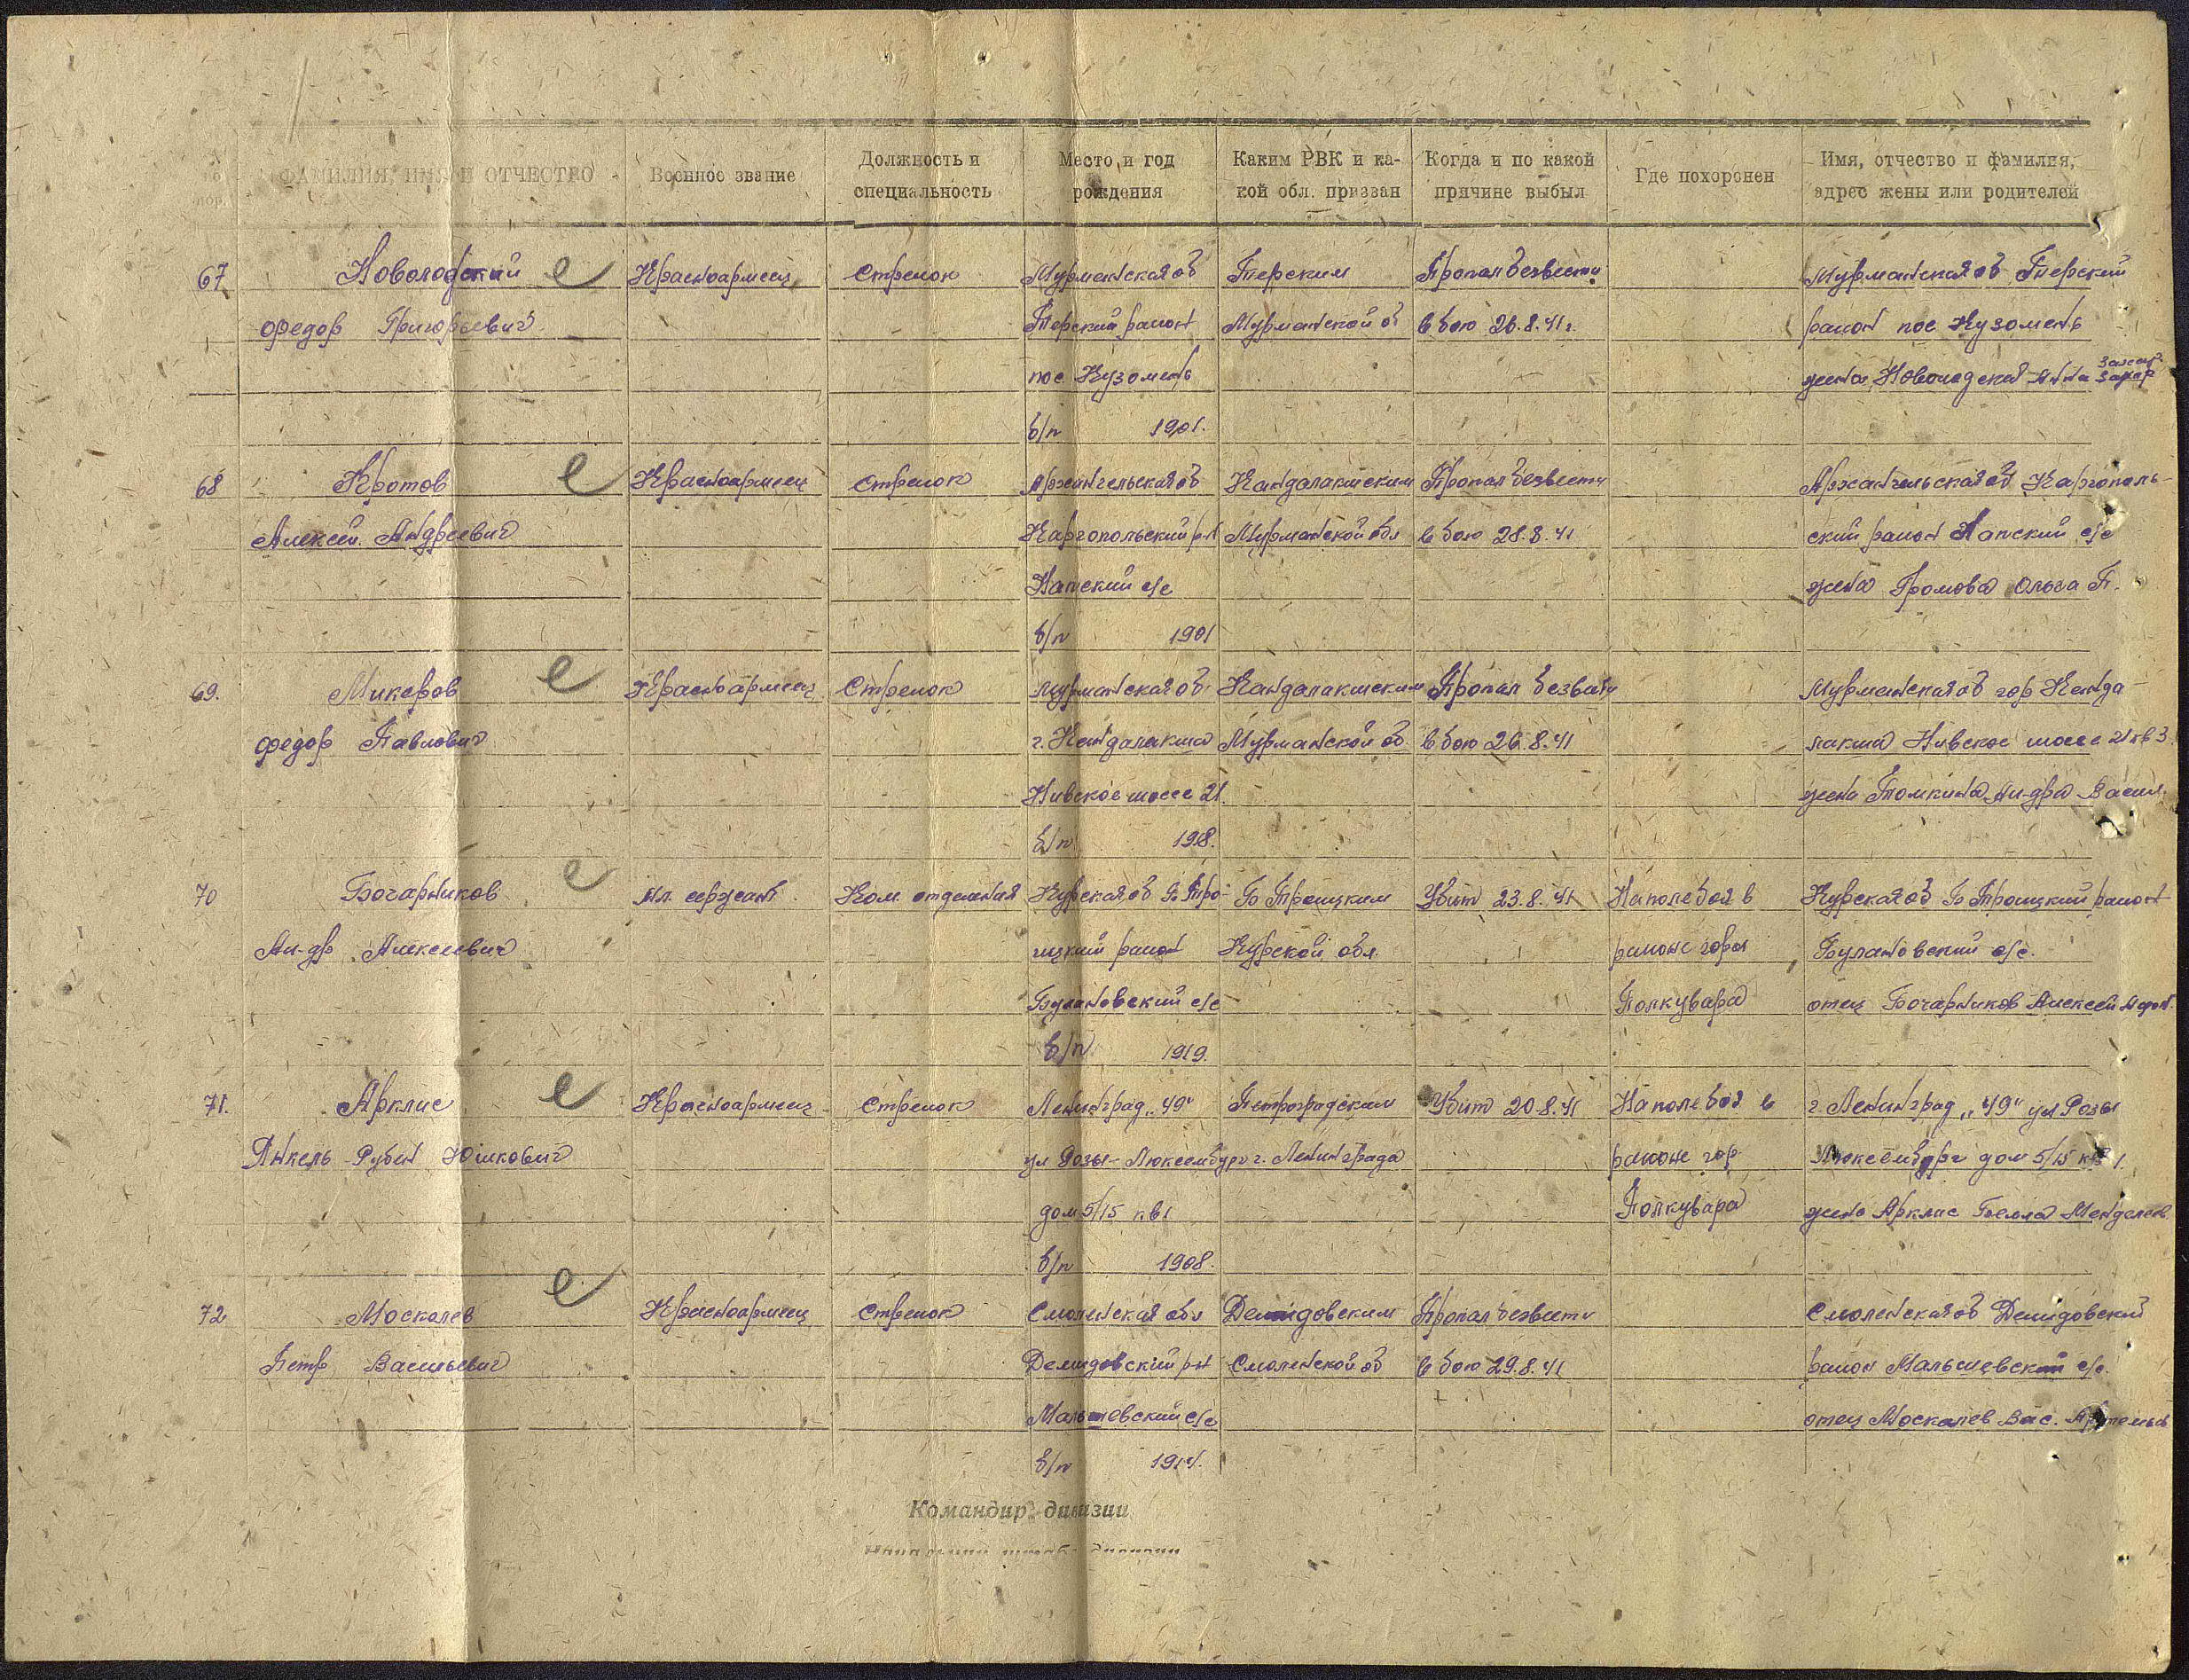 № по пор.
ФАМИЛИЯ, ИМЯ И ОТЧЕСТВО
Военное звание
Должность и
специальность
Место и год
рождения
Каким РВК и ка-
кой обл. призван
Когда и по какой
причине выбыл
Где похоронен
Имя, отчество и фамилия,
адрес жены или родителей
67 Новолодский Красноармеец Стрелок Мурманская об Терским Пропал безвести Мурманская об Терский
Федор Григорьевич Терский район Мурманской об в бою 26.8.41г. район пос Кузомень
пос Кузомень жена Новолодская Анна Захар
б/п 1901.
68 Кротов Красноармеец Стрелок Архангельская об Кандалакшским Пропал безвести Архангельская об Каргополь-
Алексей Андреевич Каргопольский р-н Мурманской обл в бою 28.8.41 ский район с/с
с/с жена Громова Ольга П.
б/п 1901
69. Микеров Красноармеец Стрелок Мурманская об Кандалакшским Пропал безвести Мурманская об гор Канда-
Федор Павлович г. Кандалакша Мурманской об в бою 26.8.41 лакша Нивское шоссе 21 кв 3
Нивское шоссе 21. жена Томкина Ал-дра Васил.
б/п 1918.
70 Бочарников мл. сержант Ком отделения Курская об Б. Тро- Б Троицким Убит 23.8.41 На поле боя в Курская об Б Троицкий район
Ал-др Алексеевич ицкий район Курской обл. районе горы Булановский с/с.
Булановский с/с Полкувара отец Бочарников Алексей
б/п 1919.
71. Арклис Красноармеец Стрелок Ленинград „49" Петроградским Убит 20.8.41 На поле боя в г. Ленинград „49" ул Розы
Янкель-Рубин Юшкович ул Розы-Люксембург г. Ленинграда районе гор Люксембург дом 5/15 кв 1.
дом 5/15 кв 1 Полкувара жена Арклис Белла Менделев.
б/п 1908.
72 Москалев Красноармеец Стрелок Смоленская обл Демидовским Пропал безвести Смоленская об Демидовский
Петр Васильевич Демидовский р-н Смоленской об в бою 29.8.41 район Мальшевский с/с.
Мальшевский с/с отец Москалев Вас.
б/п
Командир дивизии
Начальник штаба дивизии